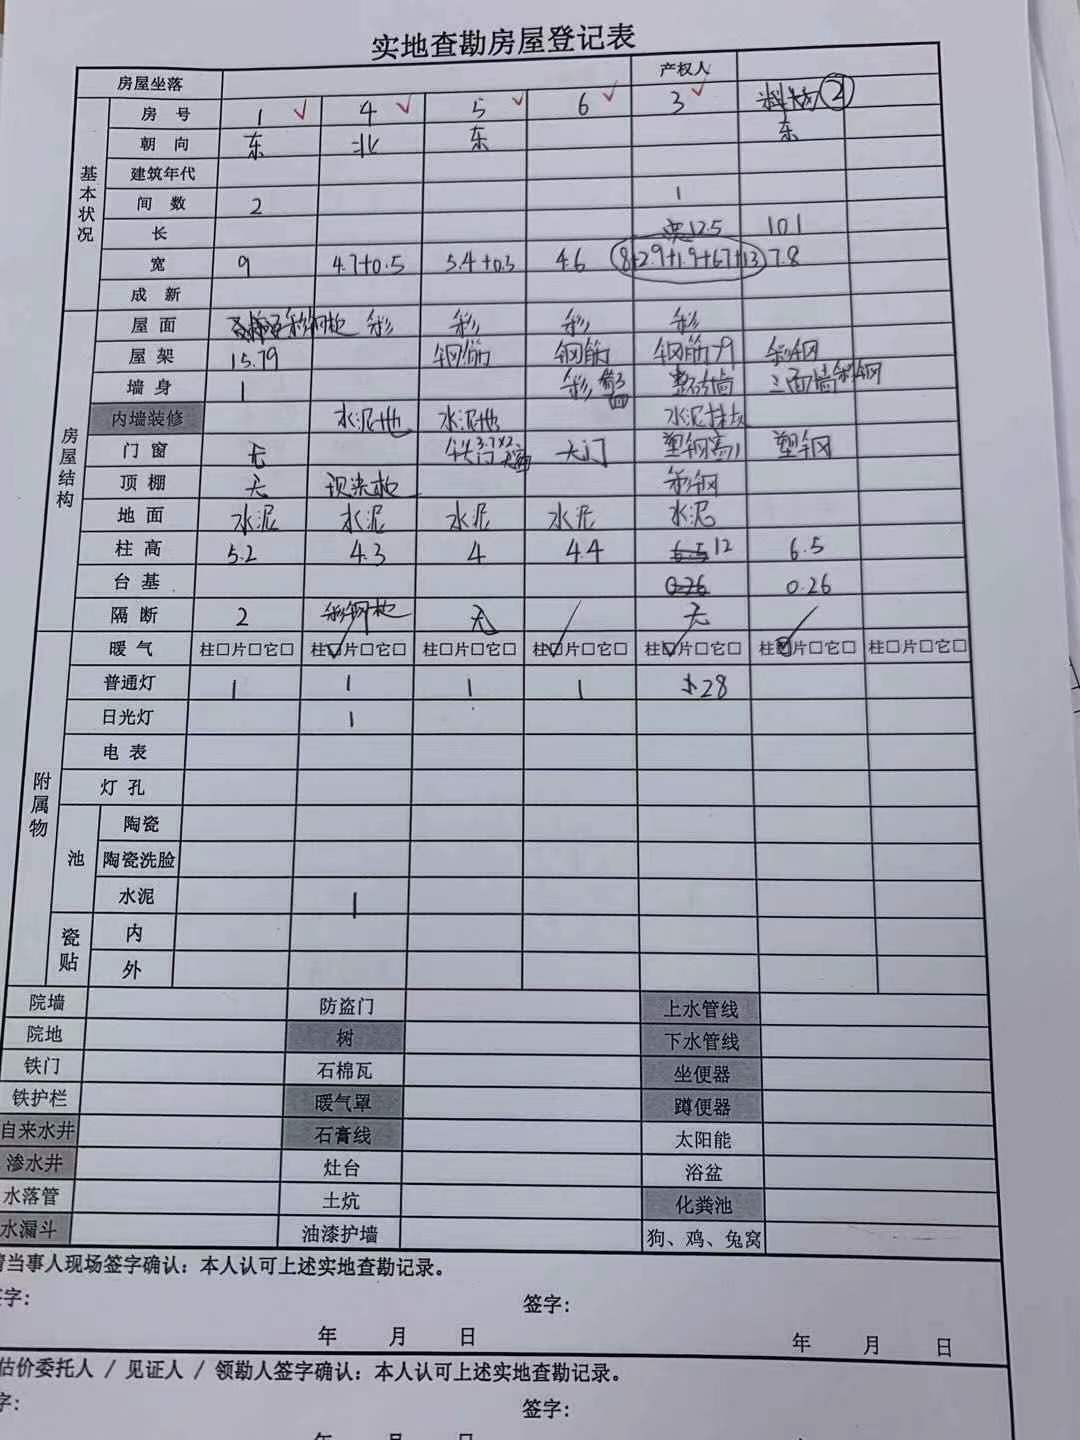 实地查勘房屋登记表
房屋坐落 产权人
基本状况
房 号 1 4 5 6 3 ②
朝 向 东 北 东 东
建筑年代
间 数 2 1
长 12.5 101
宽 9 4.7+0.5 5.4+0.5 4.6 8+2.9+1.9+6.7+13 7.8
成 新
房屋结构
屋 面 彩钢 彩 彩 彩 彩
屋 架 15.79 钢筋 钢筋 钢筋 彩钢
墙 身 1 彩 三面墙彩钢
内墙装修 水泥地 水泥地 水泥抹灰
门 窗 无 铁门 3.7×2 大门 塑钢窗 塑钢
顶 棚 无 现浇 彩钢
地 面 水泥 水泥 水泥 水泥 水泥
柱 高 5.2 4.3 4 4.4 6.5 12 6.5
台 基 0.26 0.26
隔 断 2 彩钢 无 无
附属物
暖 气 柱☐片☐它☐ 柱☑片☐它☐ 柱☐片☐它☐ 柱☑片☐它☐ 柱☑片☐它☐ 柱☑片☐它☐ 柱☐片☐它☐
普通灯 1 1 1 1 28
日光灯 1
电 表
灯 孔
池
陶瓷
陶瓷洗脸
水泥 1
瓷贴
内
外
院墙 防盗门 上水管线
院地 树 下水管线
铁门 石棉瓦 坐便器
铁护栏 暖气罩 蹲便器
自来水井 石膏线 太阳能
渗水井 灶台 浴盆
水落管 土炕 化粪池
水漏斗 油漆护墙 狗、鸡、兔窝
当事人现场签字确认：本人认可上述实地查勘记录。
字： 签字：
年 月 日 年 月 日
估价委托人 / 见证人 / 领勘人签字确认：本人认可上述实地查勘记录。
字： 签字：
年 月 日